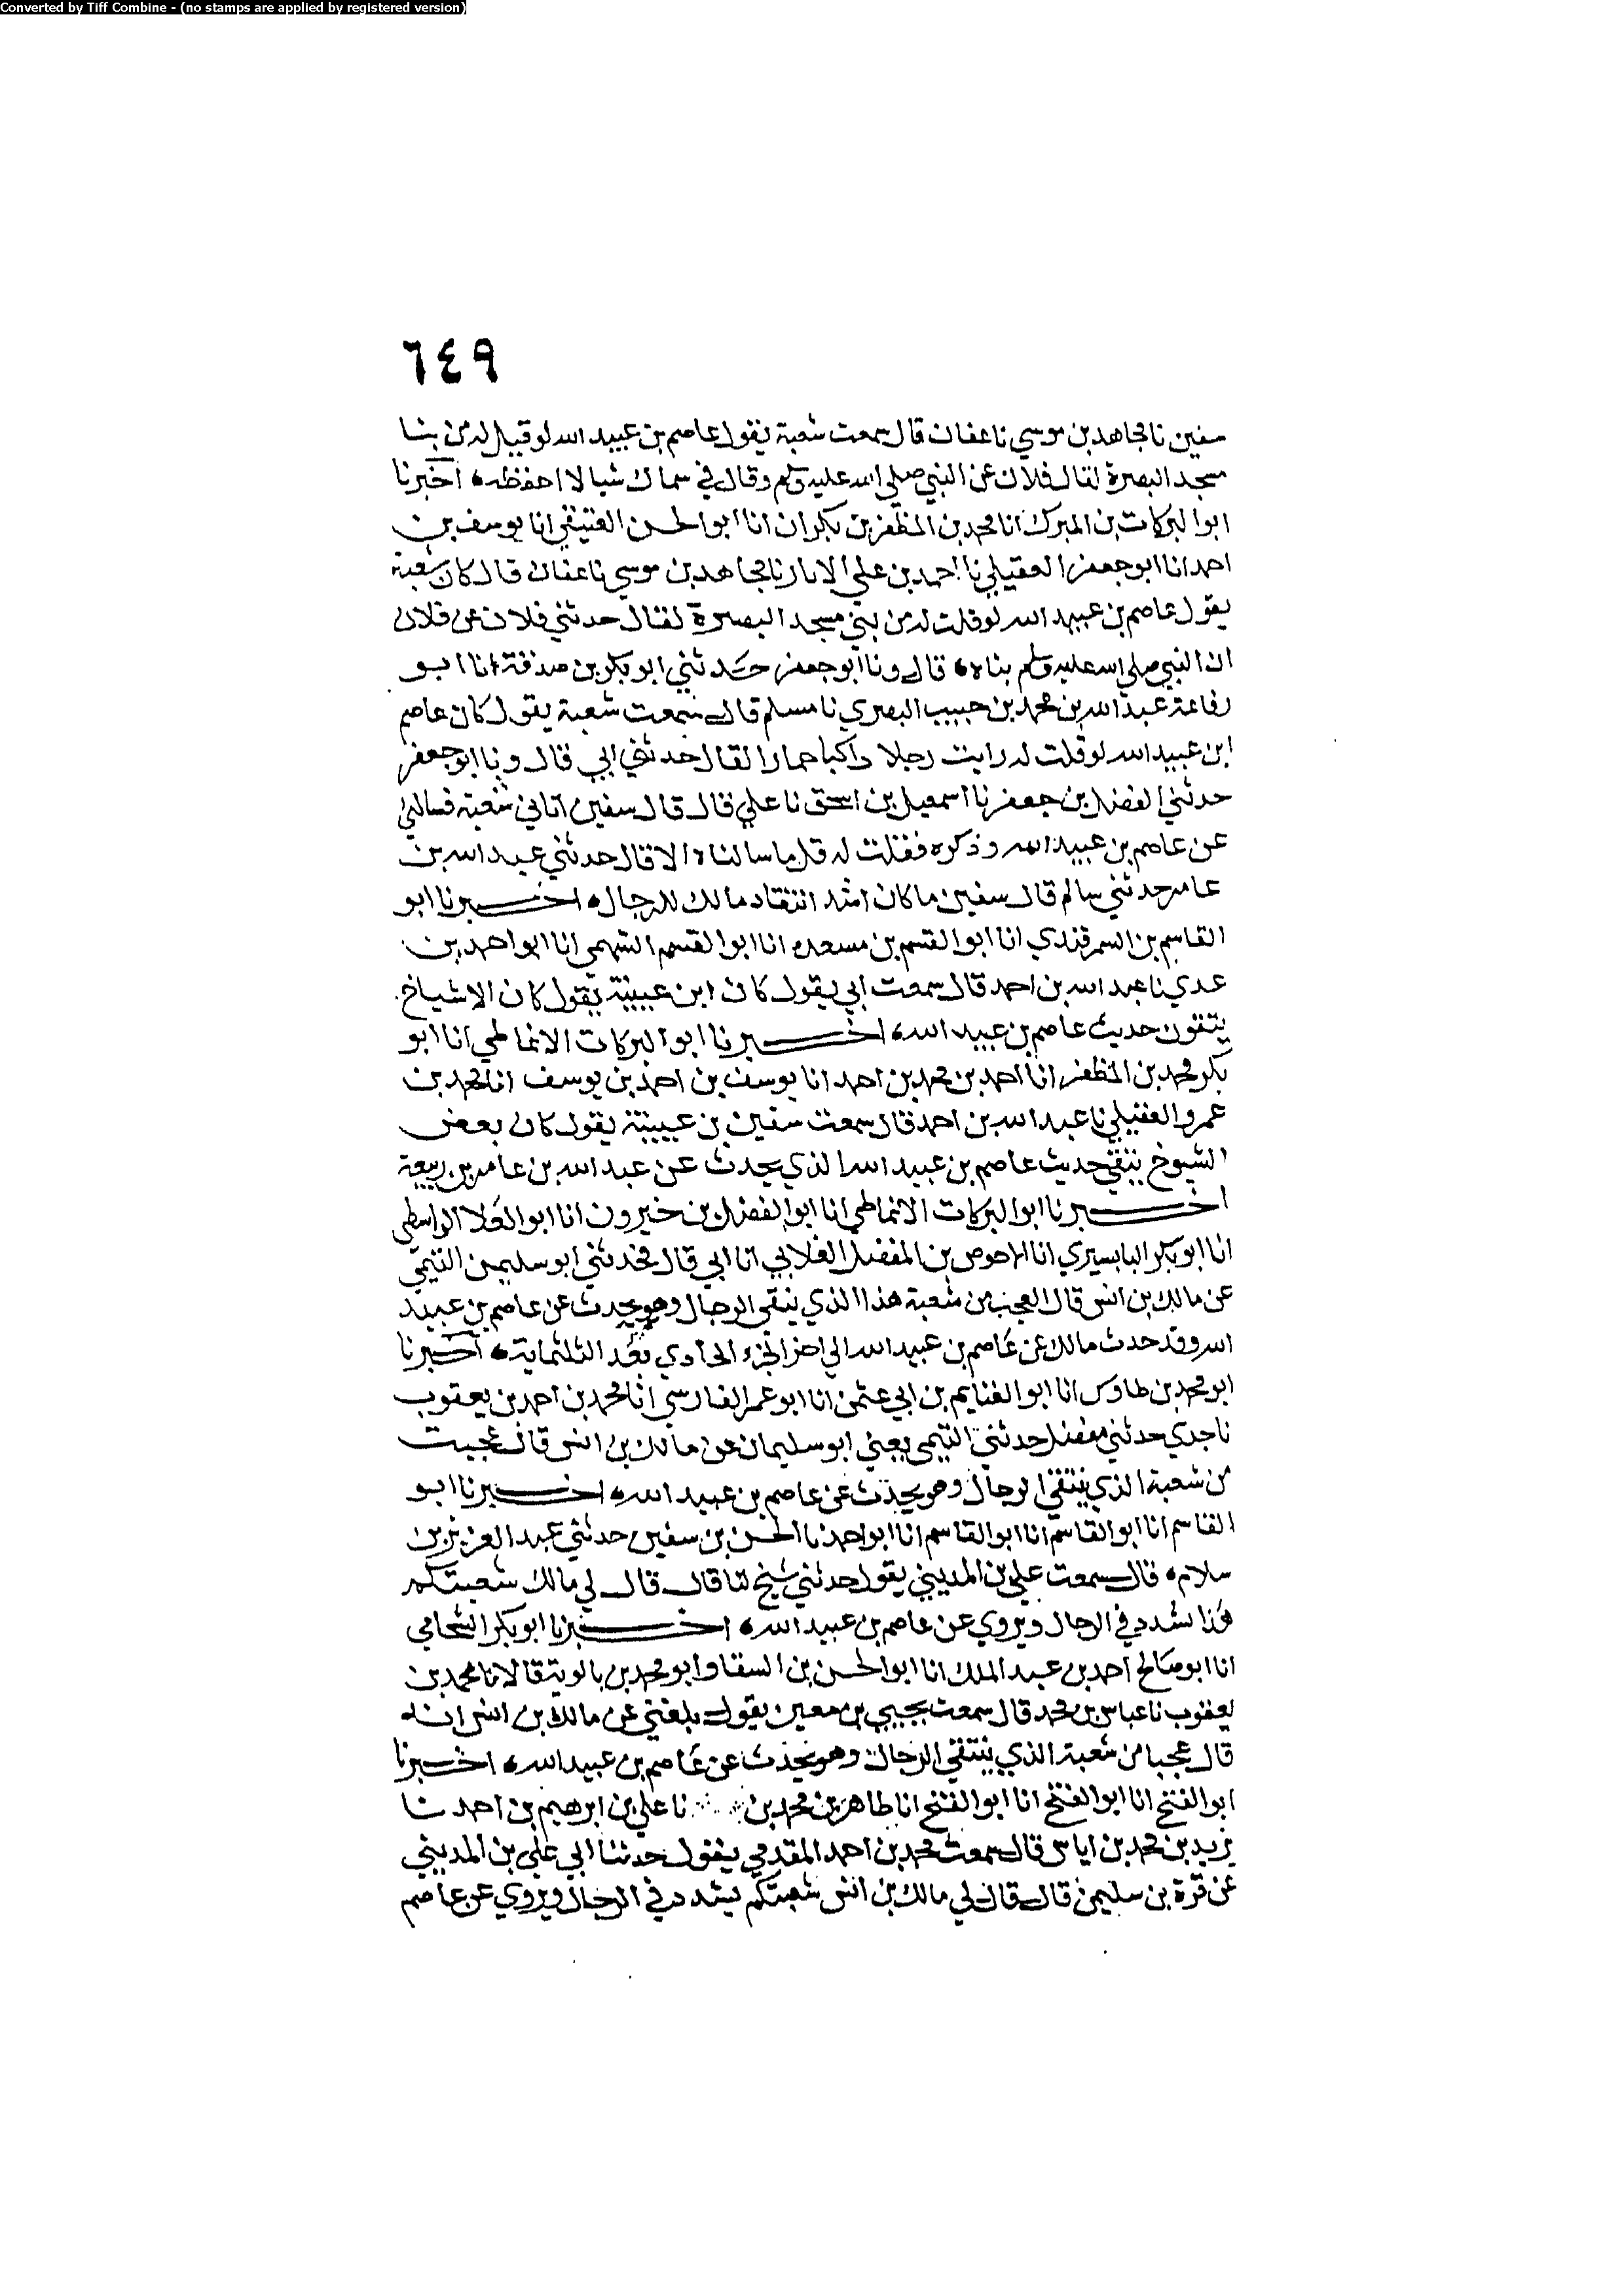 Converted by Tiff Combine - (no stamps are applied by registered version)
٦٤٩
سفين نا مجاهد بن موسي نا عفان قال سمعت شعبة يقول عاصم بن عبيد الله لو قيل له من بنا
مسجد البصرة لقال فلان عن النبي صلى الله عليه وسلم وقال في سماك شيا لا احفظه ه اخبرنا
ابو البركات بن المبرك انا محمد بن المظفر بن بكران انا ابو الحسن العتيقي انا يوسف بن
احمد انا ابو جعفر العقيلي نا احمد بن علي الابار نا مجاهد بن موسي نا عفان قال كان شعبة
يقول عاصم بن عبيد الله لو قلت له من بني مسجد البصرة لقال حدثني فلان عن فلان
ان النبي صلى الله عليه وسلم بناه ه قال ونا ابو جعفر حدثني ابو بكر بن صدقة انا ابو
رفاعة عبد الله بن محمد بن حبيب البصري نا مسلم قال سمعت شعبة يقول كان عاصم
ابن عبيد الله لو قلت له رايت رجلا راكبا حمارا لقال حدثني ابي قال ونا ابو جعفر
حدثني الفضل بن جعفر نا اسمعيل بن اسحق نا علي قال قال سفين اتاني شعبة فسالني
عن عاصم بن عبيد الله وذكره فقلت له قل ما سالناه الا قال حدثني عبد الله بن
عامر حدثني سالم قال سفين ما كان اشد انتقاد مالك للرجال ه اخبرنا ابو
القاسم بن السمرقندي انا ابو القسم بن مسعده انا ابو القسم السهمي انا ابو احمد بن
عدي نا عبد الله بن احمد قال سمعت ابي يقول كان ابن عيينة يقول كان الاشياخ
يتقون حديث عاصم بن عبيد الله ه اخبرنا ابو البركات الانماطي انا ابو
بكر محمد بن المظفر انا احمد بن محمد بن احمد انا يوسف بن احمد بن يوسف انا محمد بن
عمرو العقيلي نا عبد الله بن احمد قال سمعت سفين بن عيينة يقول كان بعض
الشيوخ يتقي حديث عاصم بن عبيد الله الذي يحدث عن عبد الله بن عامر بن ربيعة
اخبرنا ابو البركات الانماطي انا ابو الفضل بن خيرون انا ابو العلا الواسطي
انا ابو بكر البابسيري انا الاحوص بن المفضل الغلابي انا ابي قال فحدثني ابو سليمن التيمي
عن مالك بن انس قال العجب من شعبة هذا الذي ينتقي الرجال وهو يحدث عن عاصم بن عبيد
الله وقد حدث مالك عن عاصم بن عبيد الله الي اخر الجزء الحادي بعد الثلثماية ه اخبرنا
ابو محمد بن طاوس انا ابو الغنايم بن ابي عثمن انا ابو عمر الفارسي انا محمد بن احمد بن يعقوب
نا جدي حدثني مفضل حدثني التيمي يعني ابو سليمان عن مالك بن انس قال عجبت
من شعبة الذي ينتقي الرجال وهو يحدث عن عاصم بن عبيد الله ه اخبرنا ابو
القاسم انا ابو القاسم انا ابو القاسم انا ابو احمد نا الحسن بن سفين حدثني عبد العزيز بن
سلام ه قال سمعت علي بن المديني يقول حدثني شيخ لنا قال قال لي مالك شعبتكم
هذا يشدد في الرجال ويروي عن عاصم بن عبيد الله ه اخبرنا ابو بكر الشحامي
انا ابو صالح احمد بن عبد الملك انا ابو الحسن بن السقا وابو محمد بن بالويه قالا نا محمد بن
يعقوب نا عباس بن محمد قال سمعت يحيي بن معين يقول بلغني عن مالك بن انس انه
قال عجبا من شعبة الذي ينتقي الرجال وهو يحدث عن عاصم بن عبيد الله ه اخبرنا
ابو الفتح انا ابو الفتح انا ابو الفتح انا طاهر بن محمد بن نا علي بن ابرهيم بن احمد نا
يزيد بن محمد بن اياس قال سمعت محمد بن احمد المقدمي يقول حدثنا ابي علي بن المديني
عن قرة بن سليمن قال قال لي مالك بن انس شعبتكم يشدد في الرجال ويروي عن عاصم